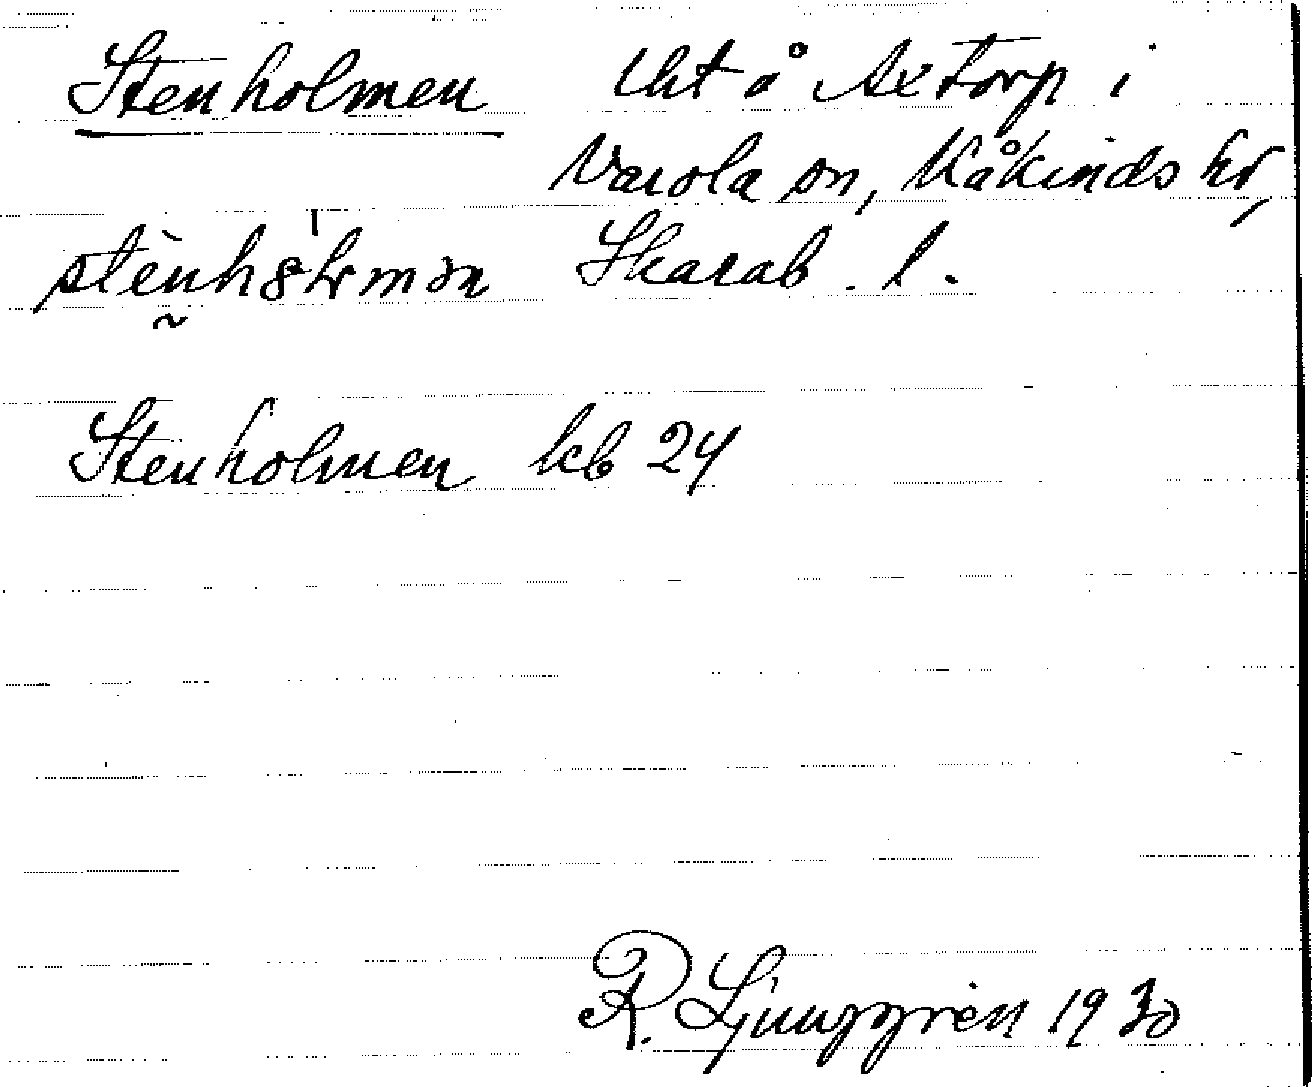 Stenholmen lht å Axtorp i
Varola sn, Kåkinds hd,
Skarab. l.
Stenholmen kb 24
R. Ljunggren 1930